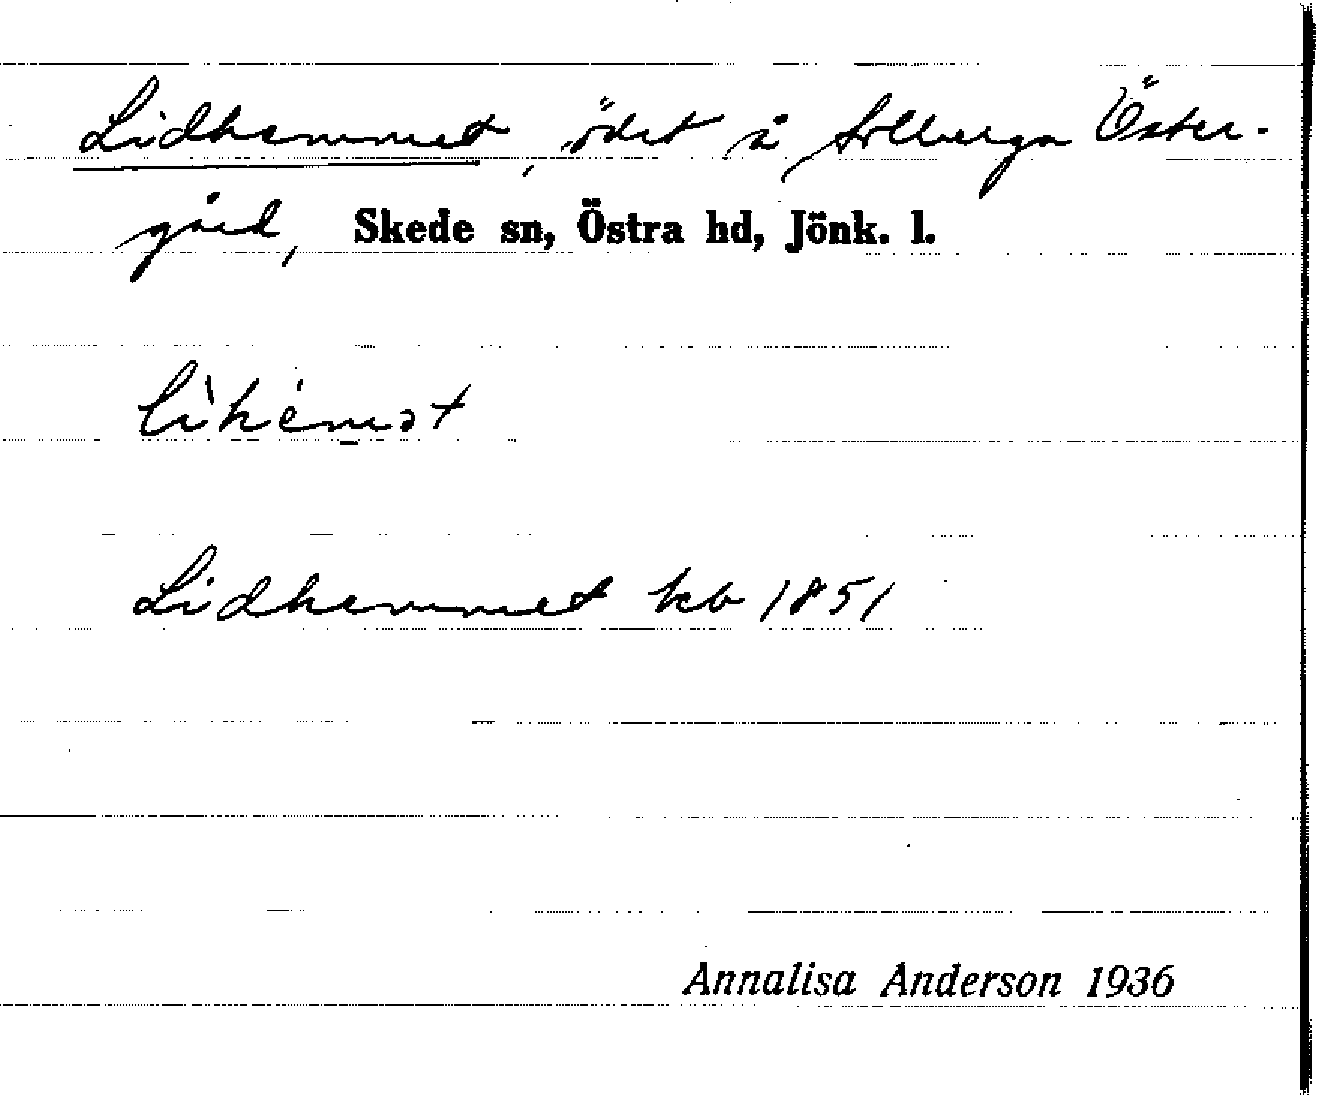 Lidhemmet, ödet å Solberga Öster-
gård, Skede sn, Östra hd, Jönk. l.
lìhémət
Lidhemmet kb 1851
Annalisa Anderson 1936